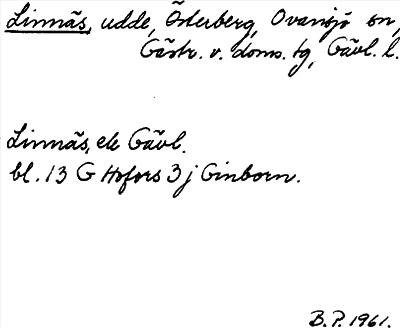 Linnäs, udde, Österberg, Ovansjö sn,
Gästr. v. doms. tg, Gävl. l.
Linnäs, ek Gävl.
bl. 13 G Hofors 3 j Ginborn.
B.P. 1961.